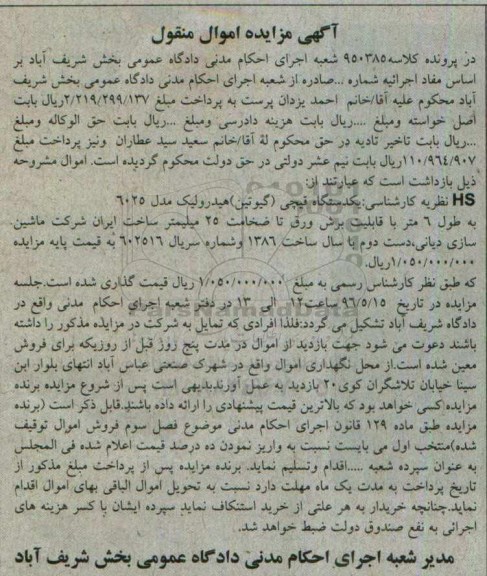 آگهی مزایده اموال منقول
در پرونده کلاسه ۹۵۰۳۸۵ شعبه اجرای احکام مدنی دادگاه عمومی بخش شریف آباد بر
اساس مفاد اجرائیه شماره ...صادره از شعبه اجرای احکام مدنی دادگاه عمومی بخش شریف
آباد محکوم علیه آقا/خانم احمد یزدان پرست به پرداخت مبلغ ۲/۲۱۹/۲۹۹/۱۳۷ریال بابت
اصل خواسته ومبلغ ....ریال بابت هزینه دادرسی ومبلغ ...ریال بابت حق الوکاله ومبلغ
...ریال بابت تاخیر تادیه در حق محکوم لهٔ آقا/خانم سعید سید عطاران ونیز پرداخت مبلغ
۱۱۰/۹۶۴/۹۰۷ریال بابت نیم عشر دولتی در حق دولت محکوم گردیده است. اموال مشروحه
ذیل بازداشت است که عبارتند از:
HS نظریه کارشناسی:یکدستگاه قیچی (گیوتین)هیدرولیک مدل ۶۰۲۵
به طول ۶ متر با قابلیت برش ورق تا ضخامت ۲۵ میلیمتر ساخت ایران شرکت ماشین
سازی دیانی،دست دوم با سال ساخت ۱۳۸۶ وشماره سریال ۶۰۲۵۱۶ به قیمت پایه مزایده
۱/۰۵۰/۰۰۰/۰۰۰ریال.
که طبق نظر کارشناس رسمی به مبلغ ۱/۰۵۰/۰۰۰/۰۰۰ ریال قیمت گذاری شده است.جلسه
مزایده در تاریخ ۹۶/۵/۱۵ ساعت۱۲ الی ۱۳ در دفتر شعبه اجرای احکام مدنی واقع در
دادگاه شریف آباد تشکیل می گردد:فلذا افرادی که تمایل به شرکت در مزایده مذکور را داشته
باشند دعوت می شود جهت بازدید از اموال در مدت پنج روز قبل از روزیکه برای فروش
معین شده است.از محل نگهداری اموال واقع در شهرک صنعتی عباس آباد انتهای بلوار ابن
سینا خیابان تلاشگران کوی۲۰ بازدید به عمل آورند.بدیهی است پس از شروع مزایده برنده
مزایده کسی خواهد بود که بالاترین قیمت پیشنهادی را ارائه داده باشند.قابل ذکر است (برنده
مزایده طبق ماده ۱۲۹ قانون اجرای احکام مدنی موضوع فصل سوم فروش اموال توقیف
شده)منتخب اول می بایست نسبت به واریز نمودن ده درصد قیمت اعلام شده فی المجلس
به عنوان سپرده شعبه .....اقدام وتسلیم نماید. برنده مزایده پس از پرداخت مبلغ مذکور از
تاریخ پرداخت به مدت یک ماه مهلت دارد نسبت به تحویل اموال الباقی بهای اموال اقدام
نماید.چنانچه خریدار به هر علتی از خرید استنکاف نماید سپرده ایشان با کسر هزینه های
اجرائی به نفع صندوق دولت ضبط خواهد شد.
مدیر شعبه اجرای احکام مدنی دادگاه عمومی بخش شریف آباد